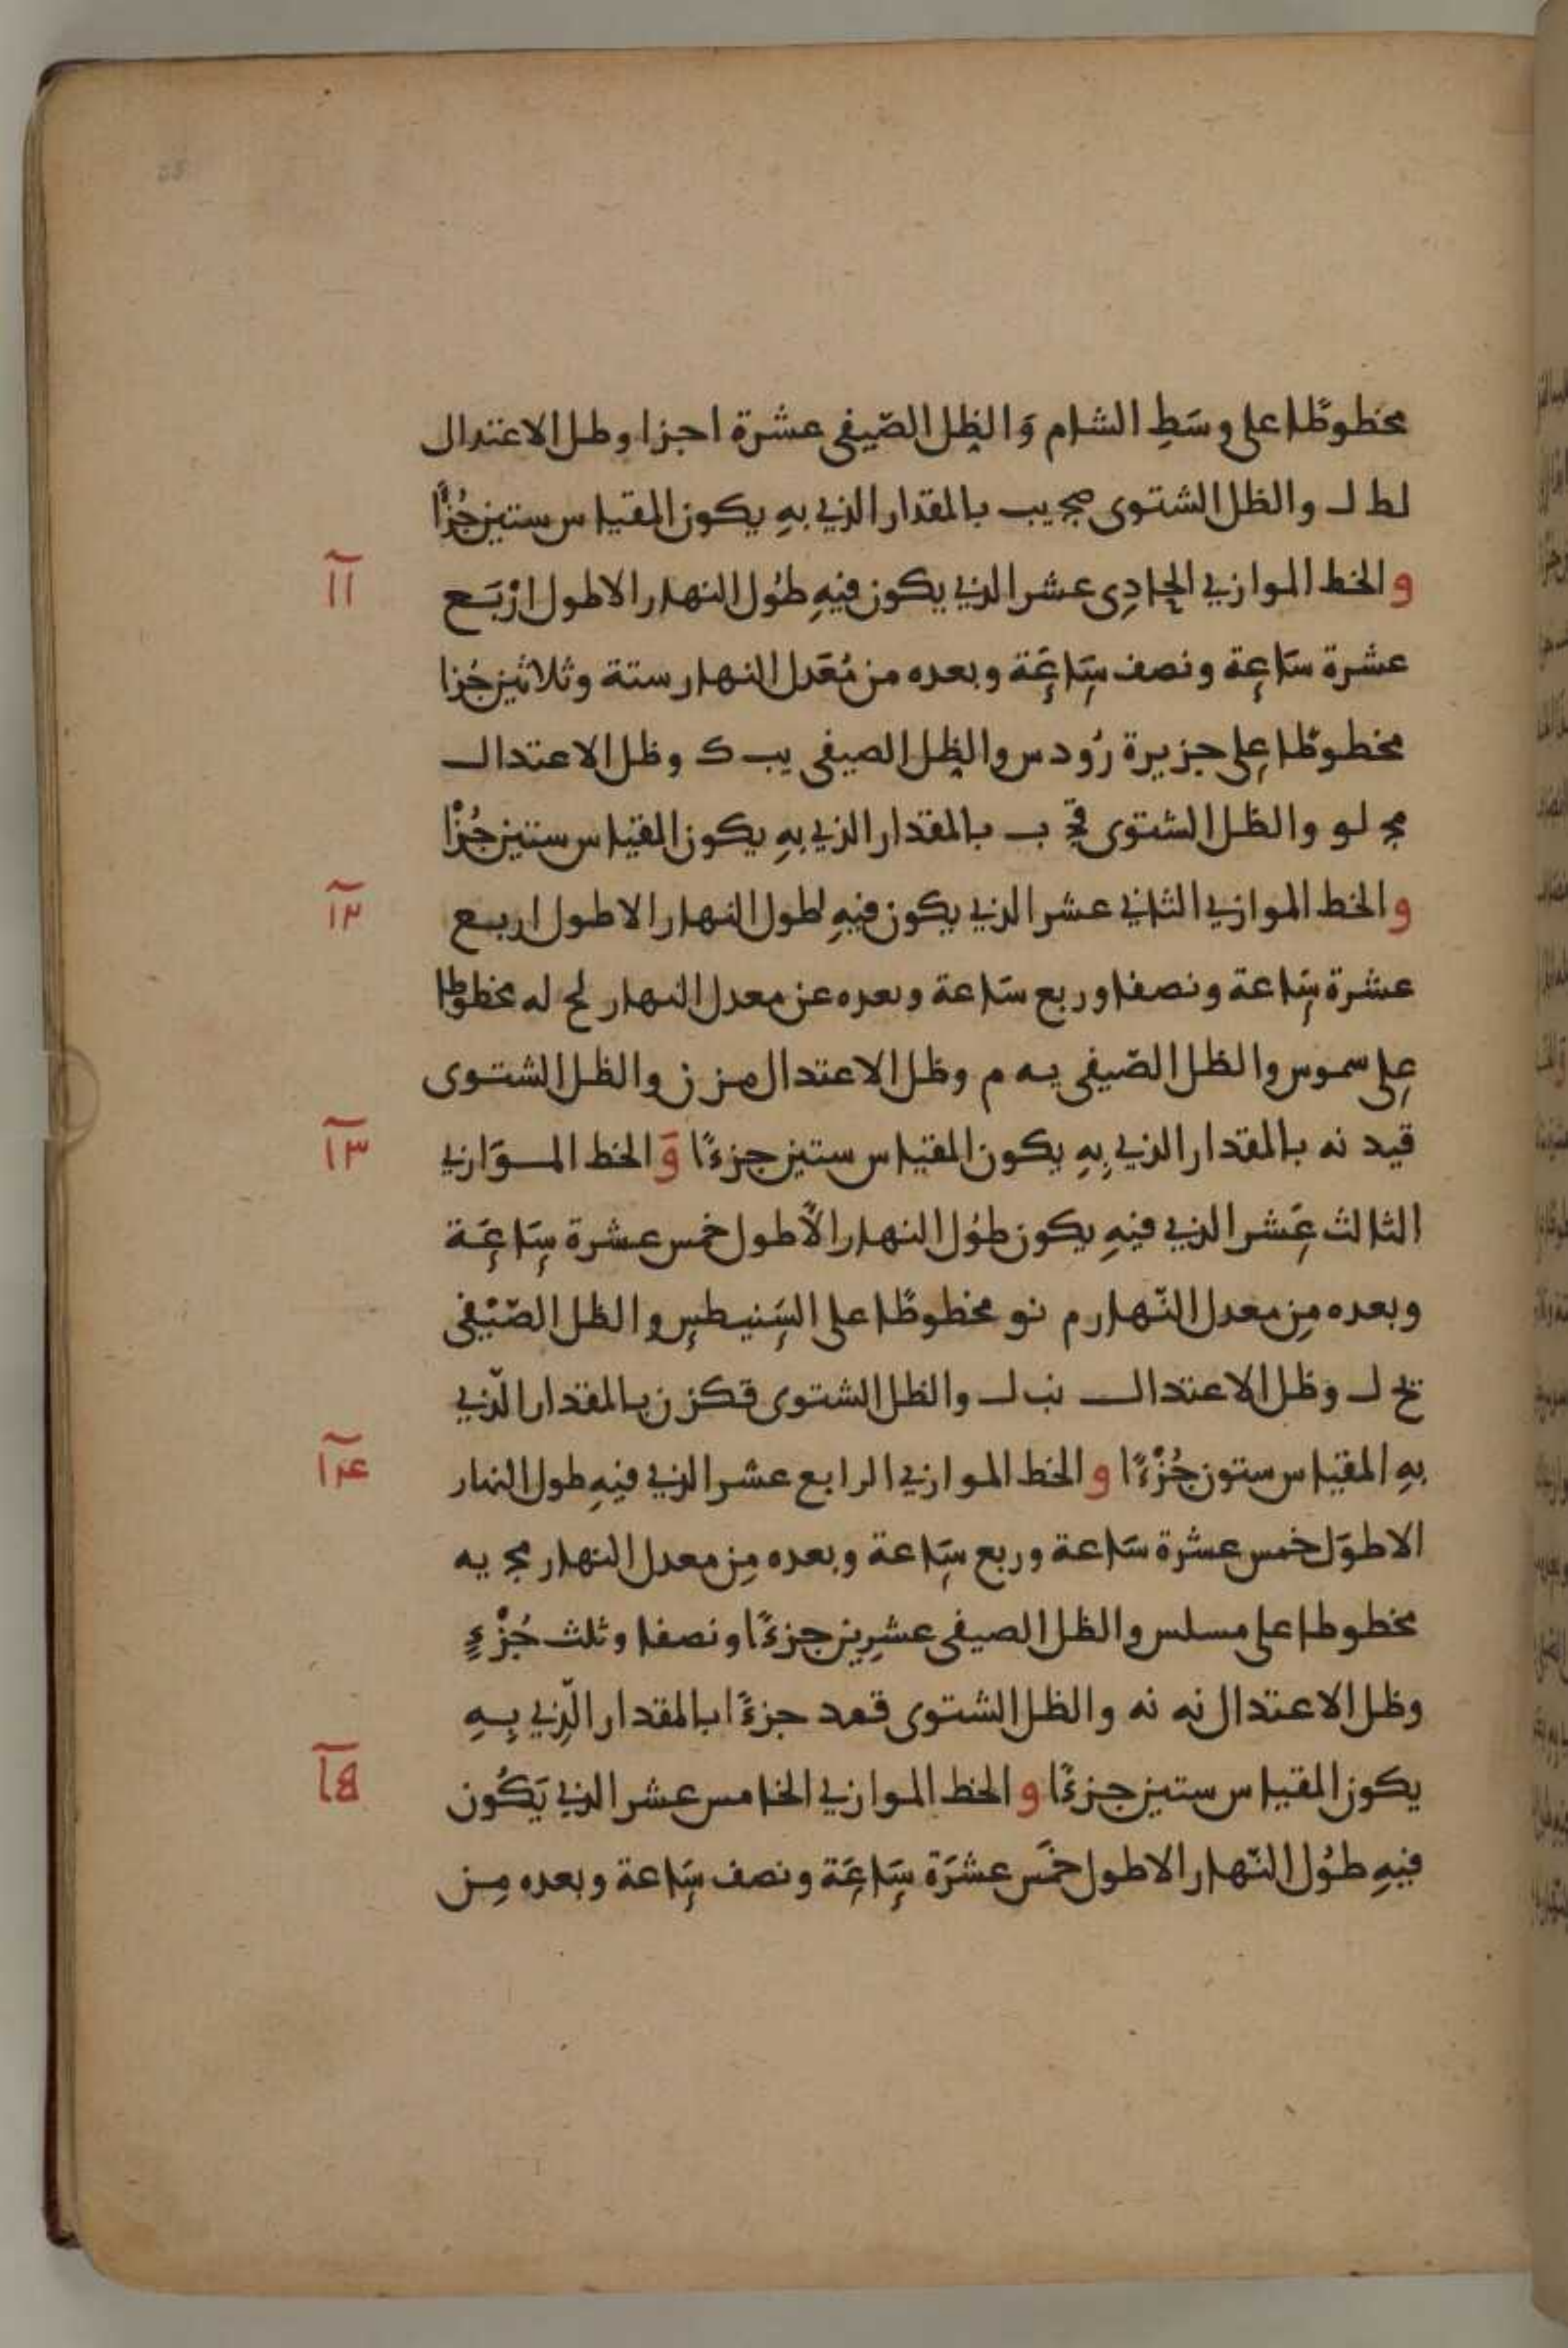 مخطوطًا على وسَطِ الشام وَالظِل الصّيفى عشرة اجزا وظل الاعتدال
لط ل والظل الشتوى صج يب بالمقدار الذي بهِ يكون المقياس ستين جُزْأً
والخط الموازي الحادِى عشر الذي يكون فيهِ طُول النهار الاطول ارْبَع
عشرة سَاعة ونصف سَاعَة وبعده من مُعَدل النهار ستة وثلاثين جُزا
مخطوطًا على جزيرة رُودس والظِل الصيفى يب ك وظل الاعتدال
مج لو والظل الشتوى قج ب بالمقدار الذي بهِ يكون المقياس ستين جُزْأ
والخط الموازي الثاني عشر الذي يكون فيهِ لطول النهار الاطول اربع
عشرة سَاعة ونصفا وربع سَاعة وبعده عن معدل النهار لح له مخطوطا
على سموس والظل الصّيفى يه م وظل الاعتدال مز ز والظل الشتوى
قيد نه بالمقدار الذي بِهِ يكون المقياس ستين جزءًا وَالخط الموَازي
الثالث عَشر الذي فيهِ يكون طُول النهار الأطول خمس عشرة سَاعَة
وبعده مِن معدل النّهار م نو مخطوطًا على السَنيطس والظل الصّيْفى
يح ل وظل الاعتدال نب ل والظل الشتوى قكز ن بالمقدار الّذي
بهِ المقياس ستون جُزْءًا والخط الموازي الرابع عشر الذي فيهِ طول النهار
الاطوَل خمس عشرة سَاعة وربع سَاعة وبعده مِن معدل النهار مج يه
مخطوطا على مسلس والظل الصيفى عشرِين جزءًا ونصفا وثلث جُزْءٍ
وظل الاعتدال نه نه والظل الشتوى قمد جزءًا بالمقدار الّذِي بِهِ
يكون المقياس ستين جزءًا والخط الموازي الخامس عشر الذي يَكُون
فيهِ طُول النّهار الاطول خمَس عشرَة سَاعَة ونصف سَاعة وبعده مِن
١١
١٢
١٣
١٤
١٥